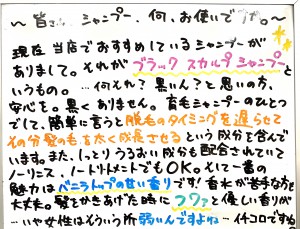 〜皆さん、シャンプー、何、お使いですか。〜
現在 当店でおすすめしているシャンプーが
ありまして。それがブラックスカルプシャンプーと
いうもの。…何それ？黒いん？と思いの方、
安心を。黒くありません。育毛シャンプーのひとつ
でして、簡単に言うと脱毛のタイミングを遅らせて
その分髪の毛を太く成長させるという成分を含んで
います。また、しっとりうるおい成分も配合されていて
ノーリンス、ノートリートメントでもOK。そして一番の
魅力はバニラトップの甘い香りです！香水が苦手な方も
大丈夫。髪をかきあげた時にフワァと優しい香りが
…いや女性はそういう所弱いんですよね…イチコロですね